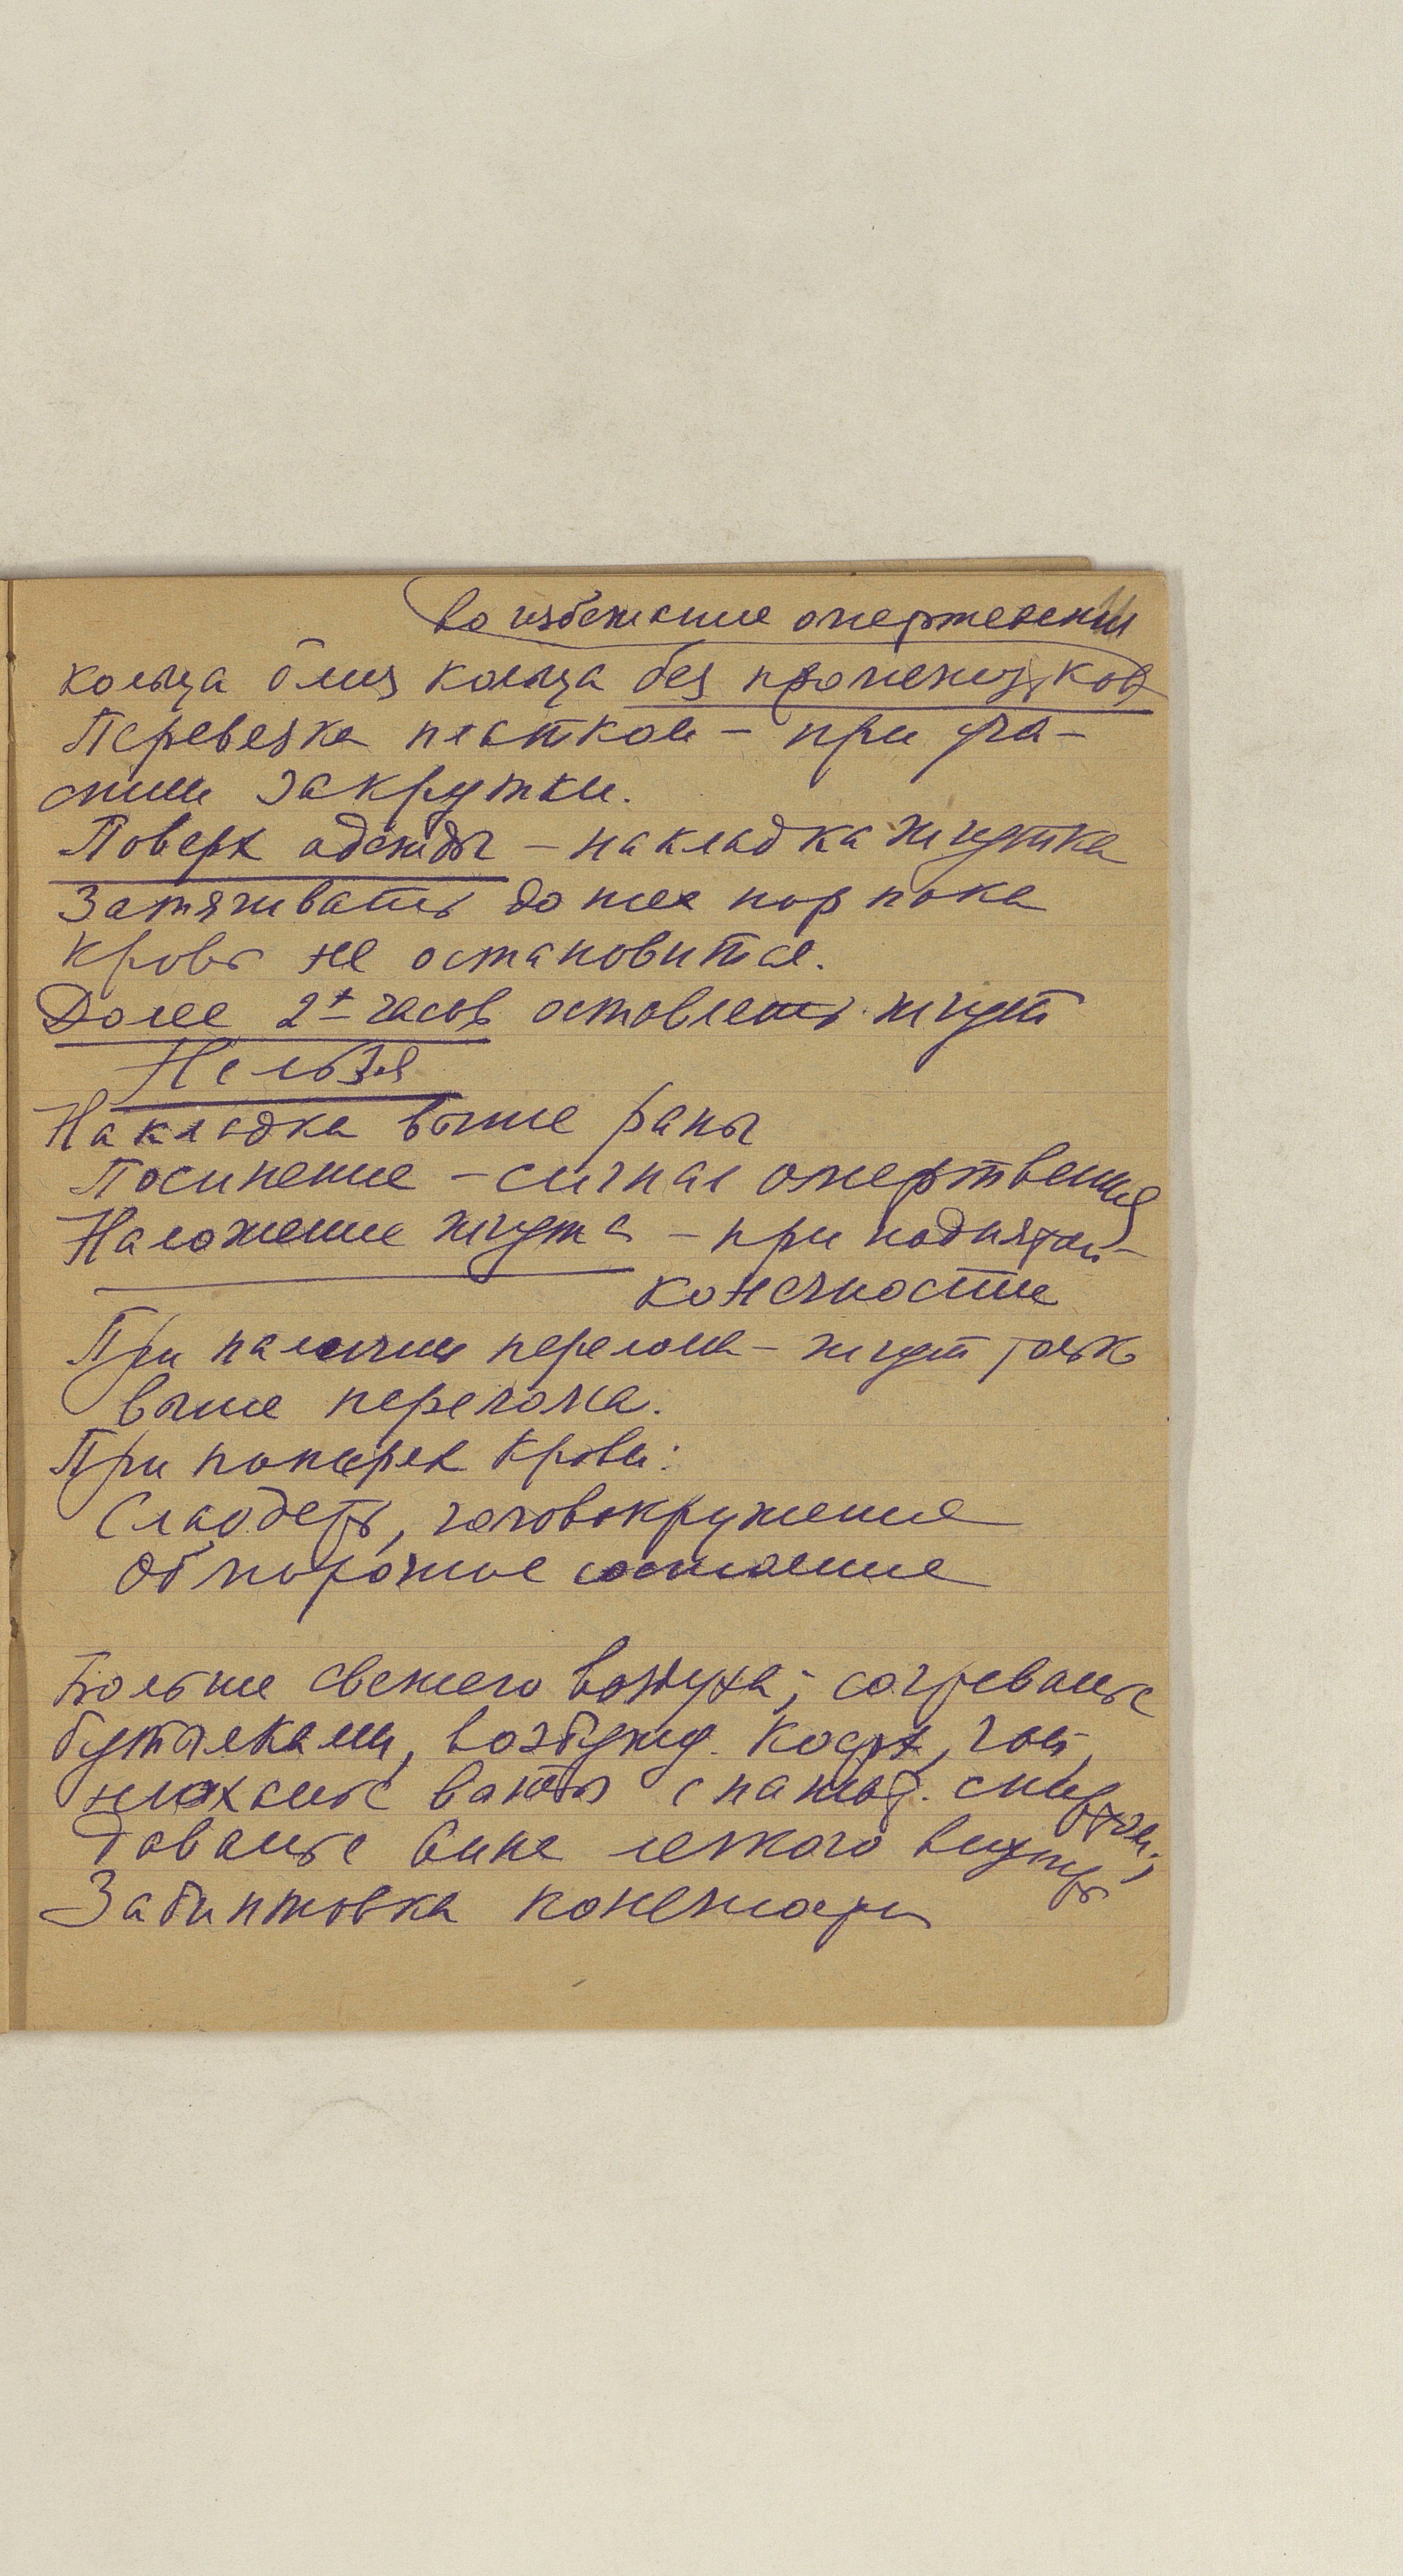 во избежание омертвения
кольца близ кольца без промежутков
Перевязка платком – при уча-
стии закрутки.
Поверх одежды – накладка жгутика
Затягивать до тех пор пока
кровь не остановится.
Долее 2х часов оставлять жгут
Нельзя
Накладка выше раны
Посинение – сигнал омертвения
Наложение жгута – при поднятой
конечности
При наличии перелома – жгут только
выше перелома.
При потерях крови:
Слабость, головокружение
обморочное состояние
Больше свежего воздуха; согреванье
бутылками, возбужд. кофе, чай,
нюханье ваты с нашат. спиртом;
даванье вина легкого внутрь
Забинтовка